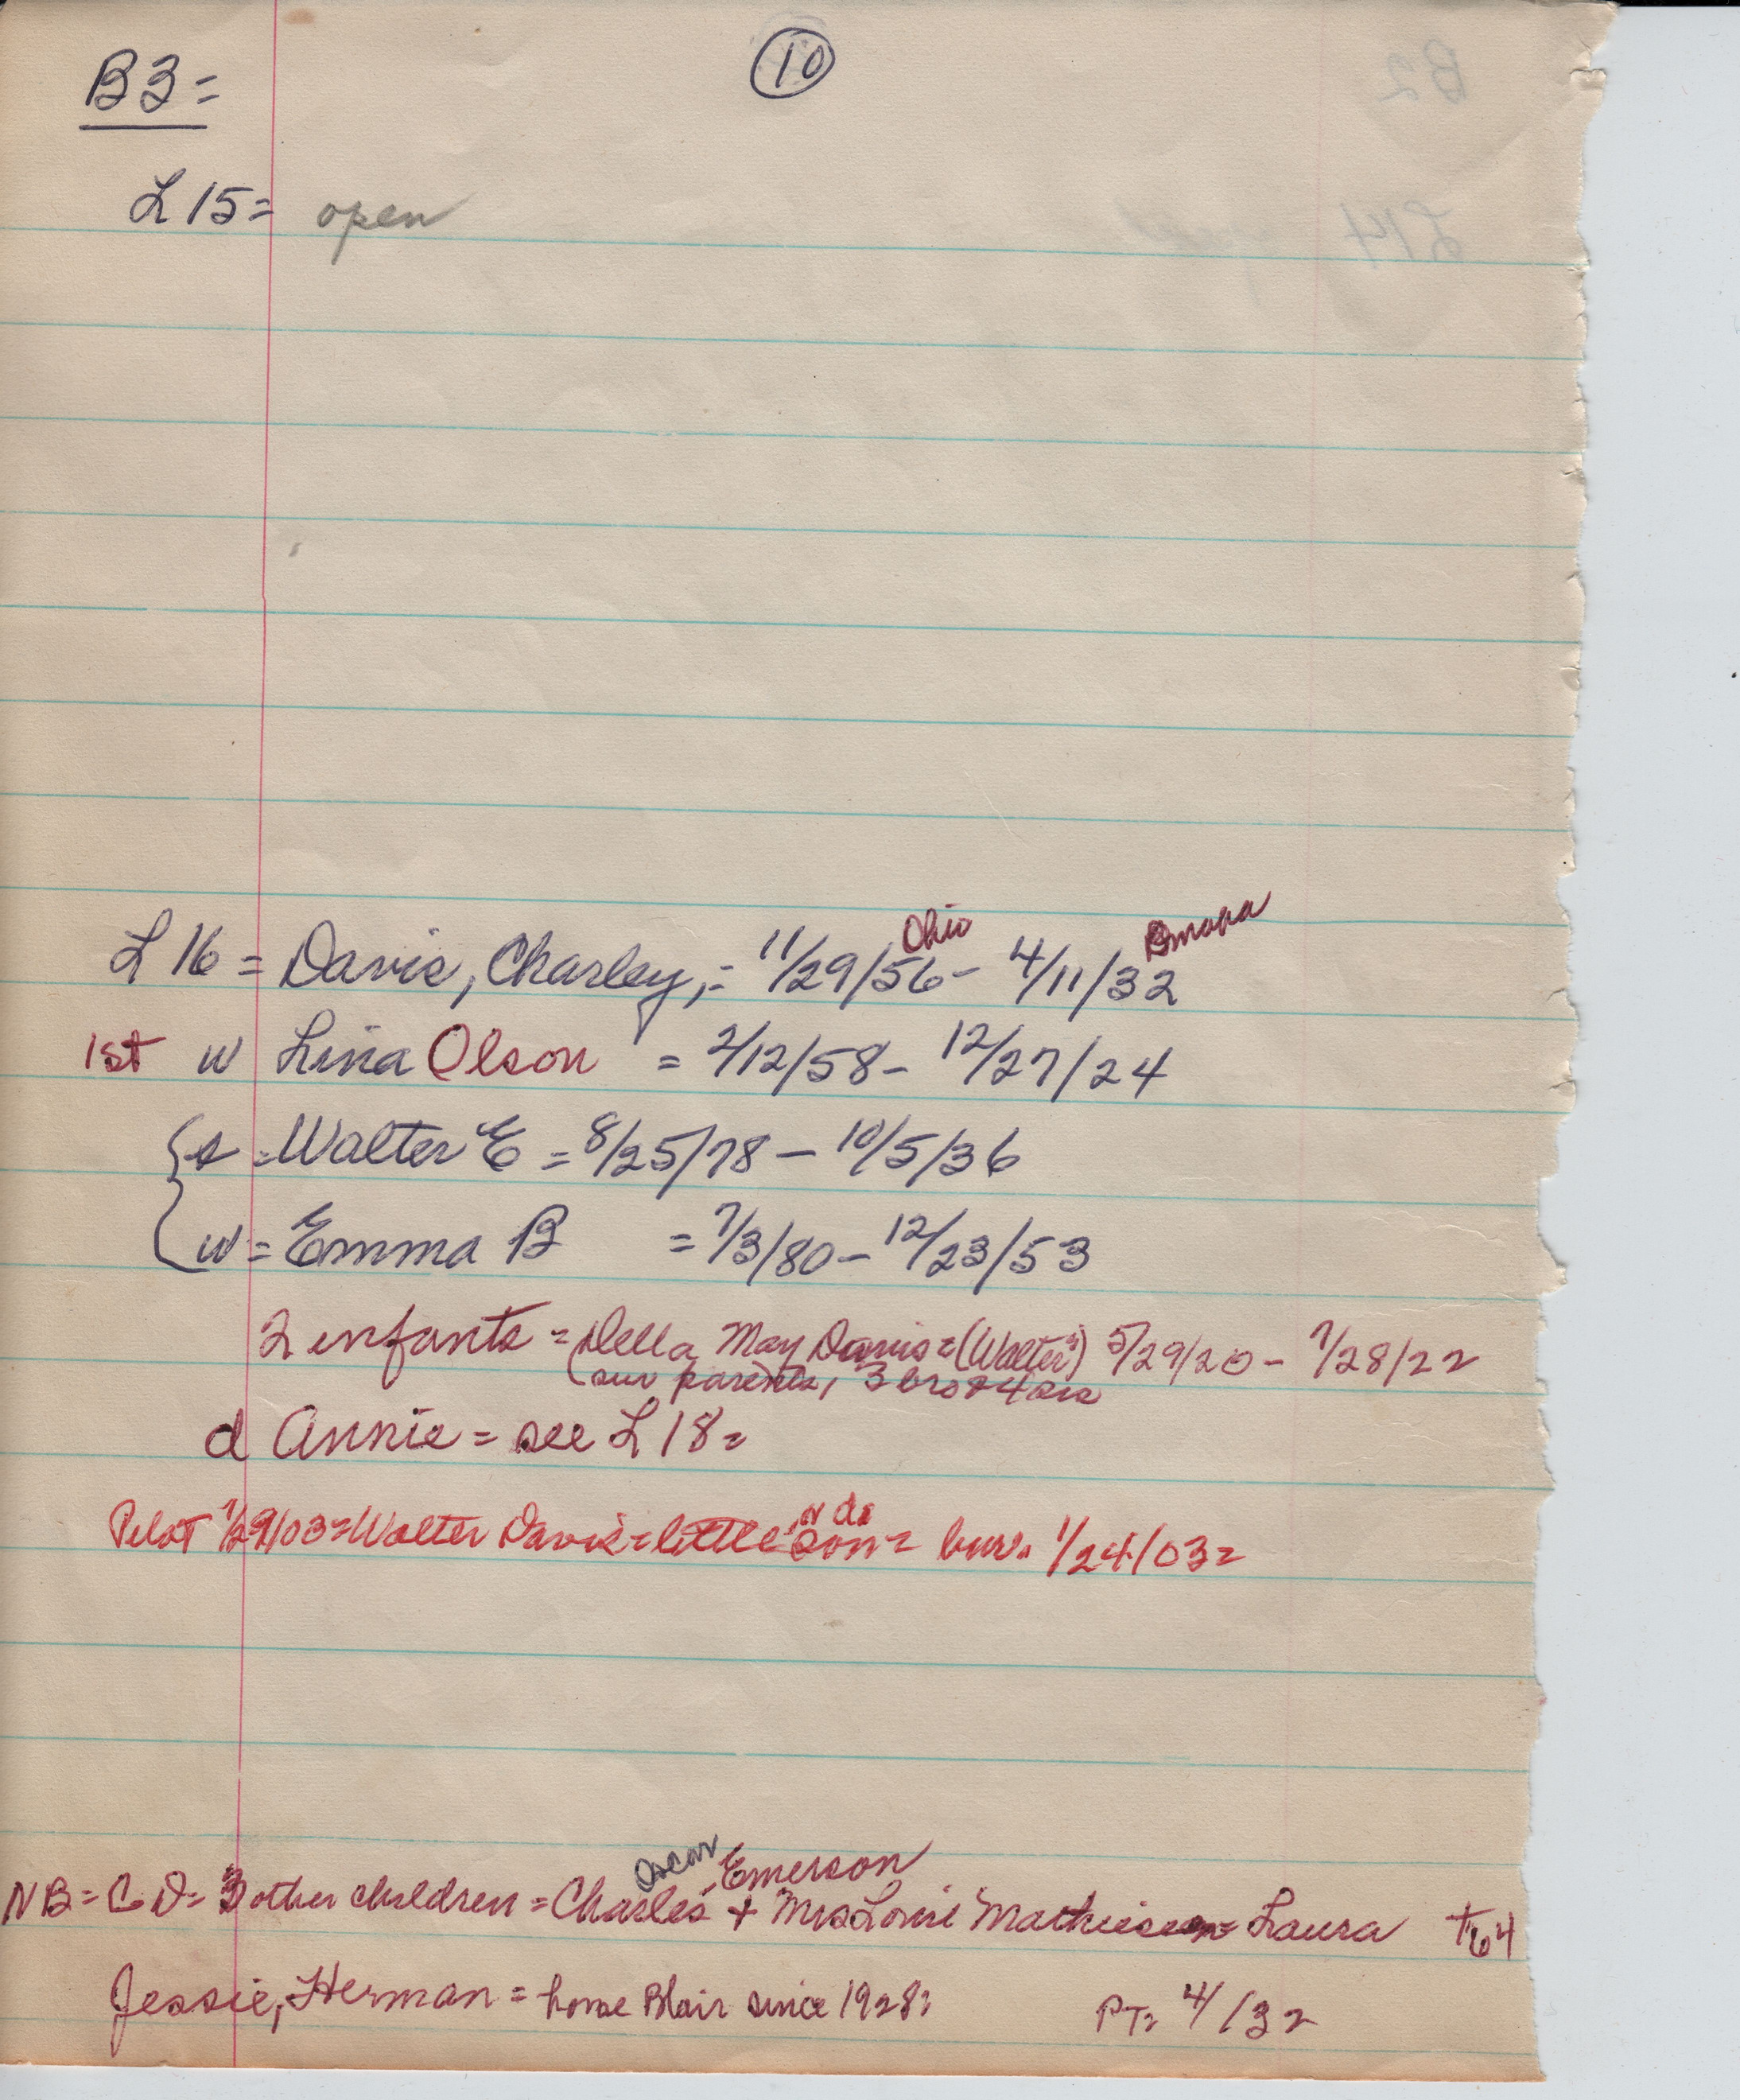 B3=
10
L 15= open
Ohio Omaha
L 16 = Davis, Charley, = 11/29/56 - 4/11/32
1st w Lina Olson = 2/12/58 - 12/27/24
s = Walter E = 8/25/78 - 10/5/36
w = Emma B = 7/3/80 - 12/23/53
2 infants = (Della May Davis = (Walter's) 5/29/20 - 7/28/22
(sur parents, 3 bros + 4 sis
d Annie = see L 18=
or da
Pilot 1/29/03 = Walter Davis = little son = bur. 1/24/03=
Oscar Emerson
NB = CD = 3 other children = Charles + Mrs Louie Mathiesen = Laura +64
Jessie, Herman = home Blair since 1928: PT= 4/32